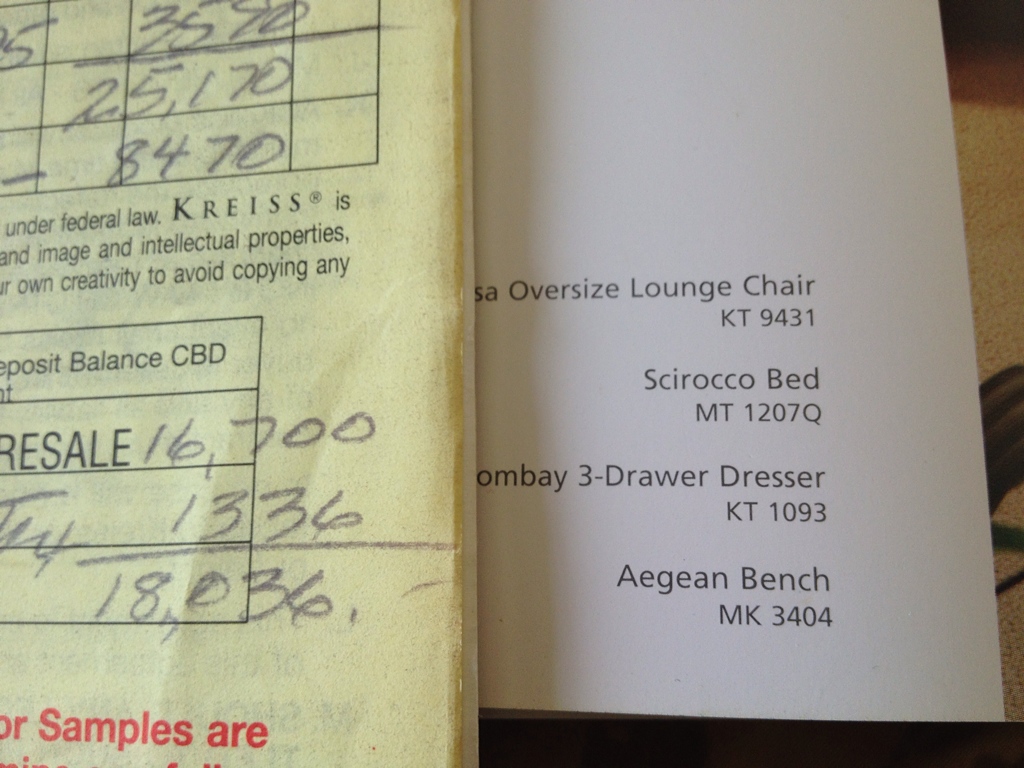 3590
25,170
8470
under federal law. KREISS® is
and image and intellectual properties,
own creativity to avoid copying any
Deposit Balance CBD
RESALE 16,700
1336
18,036.
or Samples are
Oversize Lounge Chair
KT 9431
Scirocco Bed
MT 1207Q
ombay 3-Drawer Dresser
KT 1093
Aegean Bench
MK 3404